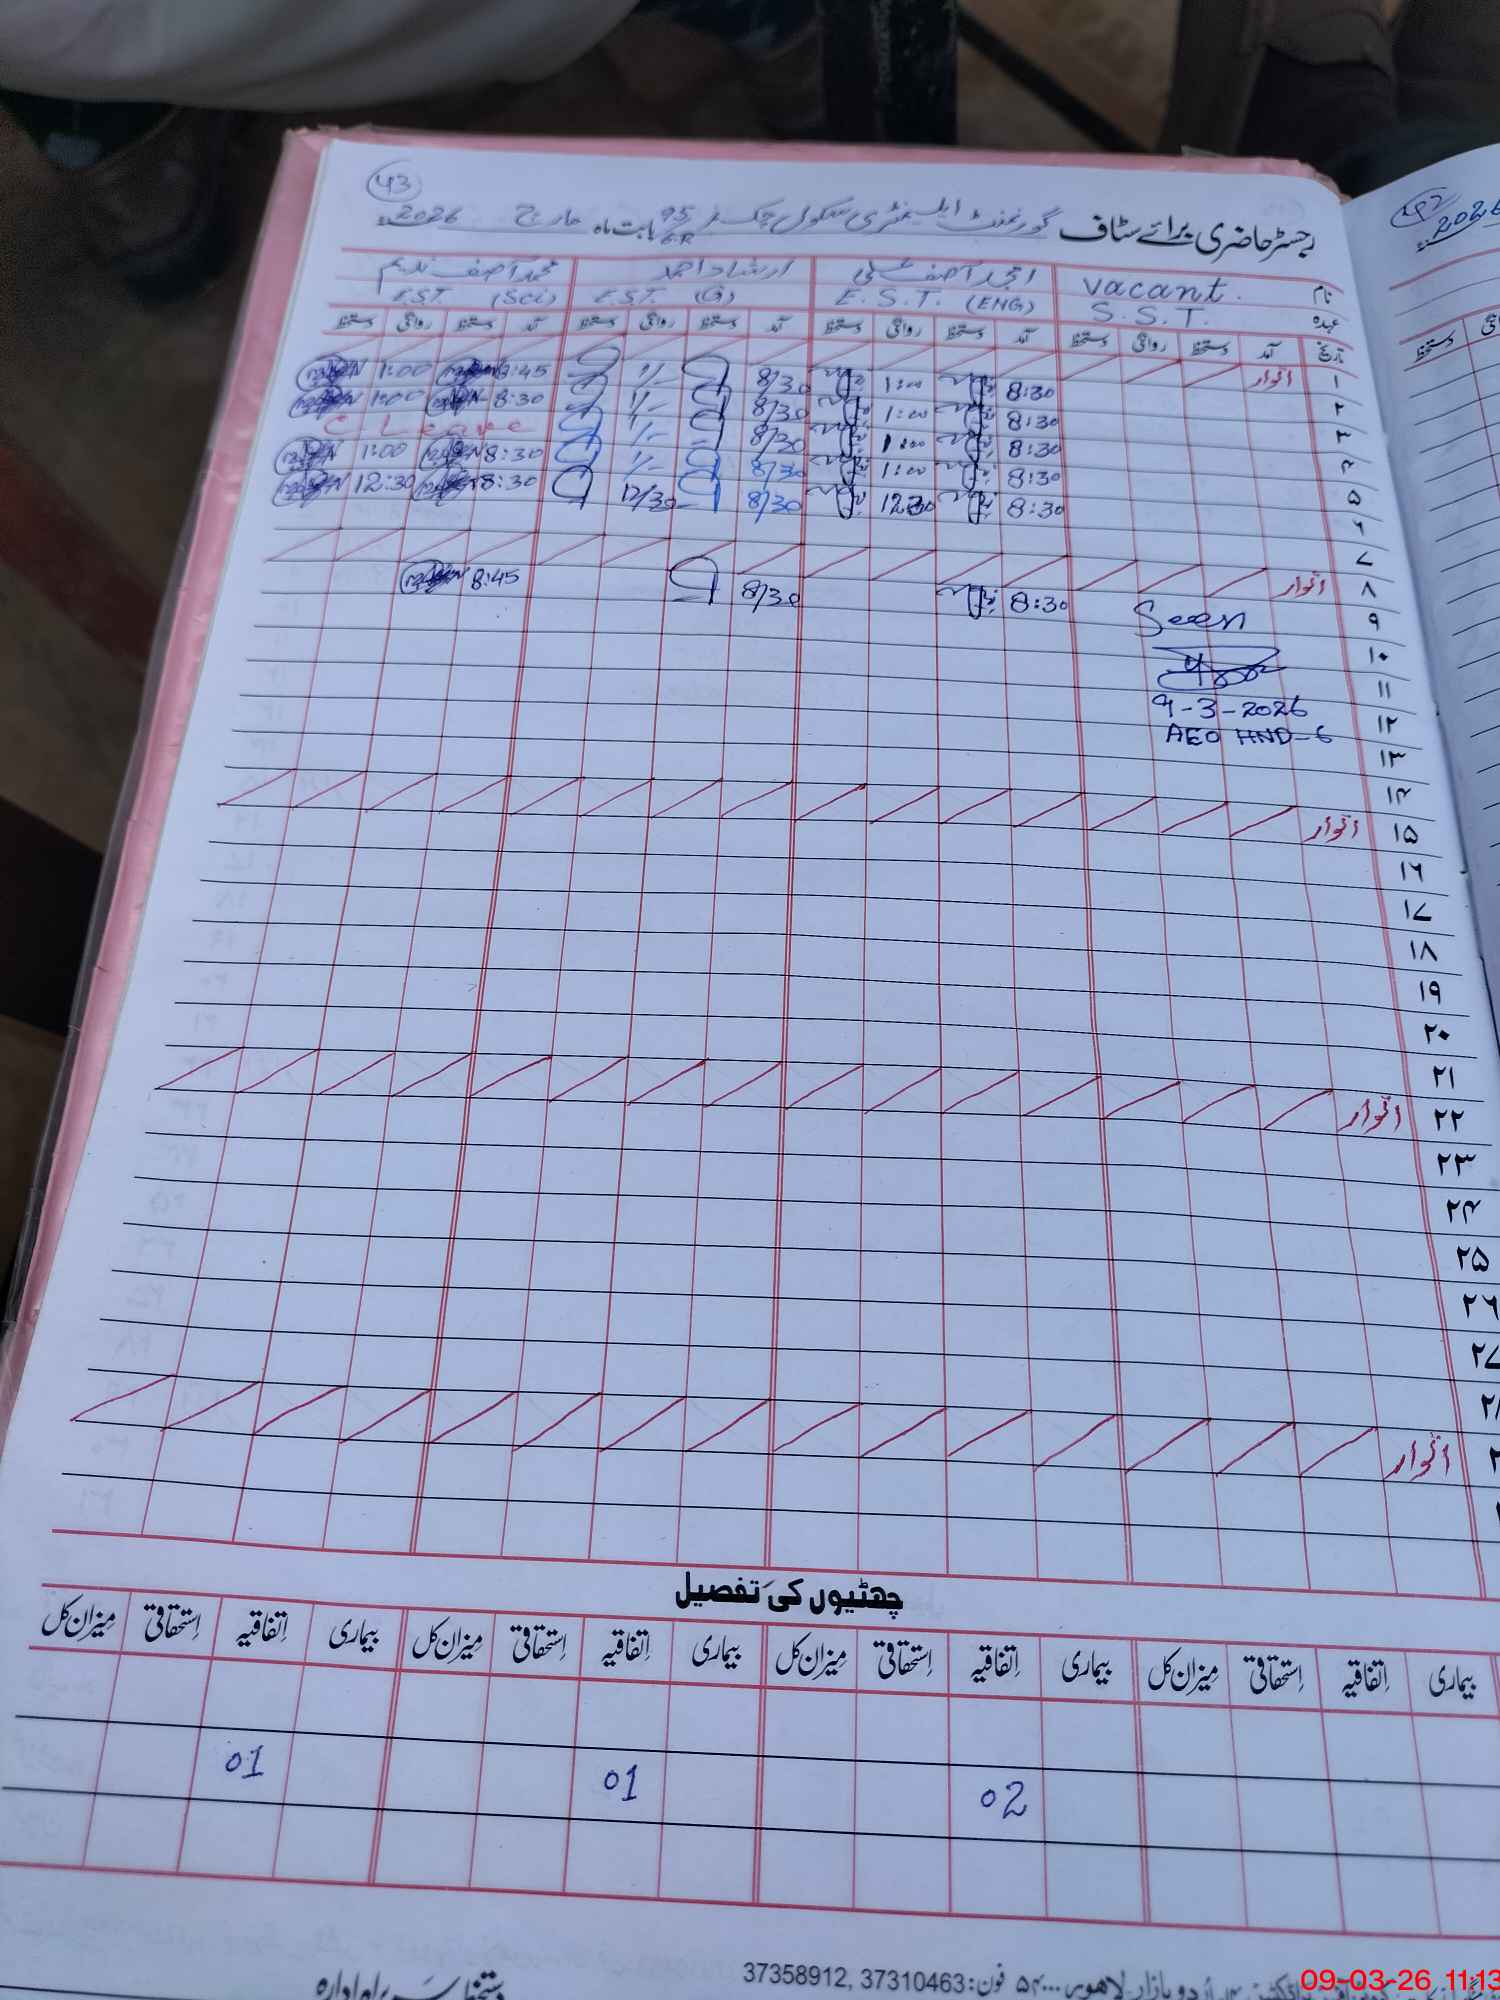 43
رجسٹر حاضری برائے سٹاف گورنمنٹ ایلیمنٹری سکول چک نمبر 95/6.R بابت ماہ مارچ 2026
نام vacant. امجد آصف علی ارشاد احمد محمد آصف ندیم
عہدہ S.S.T. E.S.T. (ENG) E.S.T. (G) E.S.T. (Sci)
تاریخ آمد دستخط روانگی دستخط آمد دستخط روانگی دستخط آمد دستخط روانگی دستخط آمد دستخط روانگی دستخط
۱ اتوار
۲ 8:30 1:00 8/30 1/- 8:45 1:00
۳ 8:30 1:00 8/30 1/- 8:30 1:00
۴ 8:30 1:00 8/30 1/- C-Leave
۵ 8:30 1:00 8/30 1/- 8:30 1:00
۶ 8:30 12:30 8/30 12/30 8:30 12:30
۷
۸ اتوار
۹ 8:30 8/30 8:45
Seen
۱۰
۱۱
9-3-2026
۱۲
AEO HND-6
۱۳
۱۴
۱۵ اتوار
۱۶
۱۷
۱۸
۱۹
۲۰
۲۱
۲۲ اتوار
۲۳
۲۴
۲۵
۲۶
۲۷
اتوار
چھٹیوں کی تفصیل
بیماری اتفاقیہ استحقاقی میزان کل بیماری اتفاقیہ استحقاقی میزان کل بیماری اتفاقیہ استحقاقی میزان کل بیماری اتفاقیہ استحقاقی میزان کل
02 01 01
اُردو بازار لاہور فون: 37310463, 37358912
دستخط سربراہ ادارہ
2026
دستخط
09-03-26 11:13